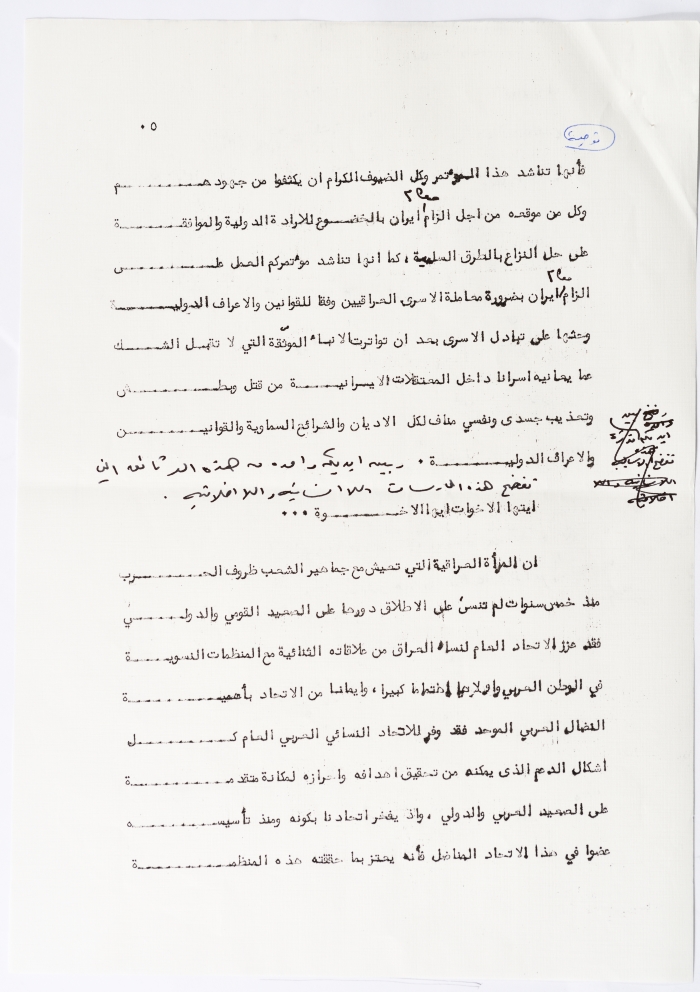 ٥٠
توصية
فأنها تناشد هذا المؤتمر وكل الضيوف الكرام ان يكثفوا من جهودهــــــم
وكل من موقعه من اجل الزام ايران بالخضوع للارادة الدولية والموافقـــــة
على حل النزاع بالطرق السلمية ، كما انها تناشد مؤتمركم العمل علــــــى
الزام ايران بضرورة معاملة الاسرى العراقيين وفقا للقوانين والاعراف الدوليــــــة
وحثها على تبادل الاسرى بعد ان تواترت الانباء الموثقة التي لا تقبل الشـــــك
عما يعانيه اسرانا داخل المعتقلات الايــرانيـــــــة من قتل وبطـــــش
وتعذيب جسدى ونفسي مناف لكل الاديان والشرائع السماوية والقوانيـــــن
والاعراف الدوليـــــــة . وبين ايديكم واحدة من هذه الوثائق التي
تفضح هذه الممارسات اللاانسانية واللااخلاقية .
ايتها الاخوات ايها الاخـــــــوة ...
ان المرأة العراقية التي تعيش مع جماهير الشعب ظروف الحـــــــرب
منذ خمس سنوات لم تنسى على الاطلاق دورها على الصعيد القومي والدولـــــــي
فقد عزز الاتحاد العام لنساء العراق من علاقاته الثنائية مع المنظمات النسويـــــة
في الوطن العربي واولاها اهتماما كبيرا ، وايمانا من الاتحاد بأهميـــــــة
النضال العربي الموحد فقد وفر للاتحاد النسائي العربي العام كـــــــل
اشكال الدعم الذى يمكنه من تحقيق اهدافه واحرازه لمكانة متقدمـــــــة
على الصعيد العربي والدولي ، واذ يفخر اتحادنا بكونه ومنذ تأسيســـــــه
عضوا في هذا الاتحاد المناضل فأنه يعتز بما حققته هذه المنظمـــــــة